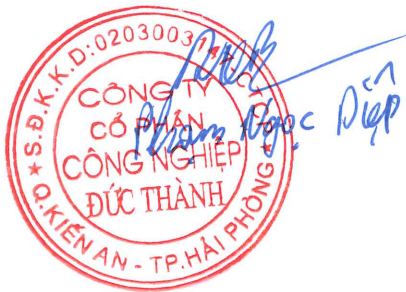 S.Đ.K.K.D:0203003
CÔNG TY
CỔ PHẦN
CÔNG NGHIỆP
ĐỨC THÀNH
Q.KIẾN AN - TP.HẢI PHÒNG
Phạm Ngọc Diệp